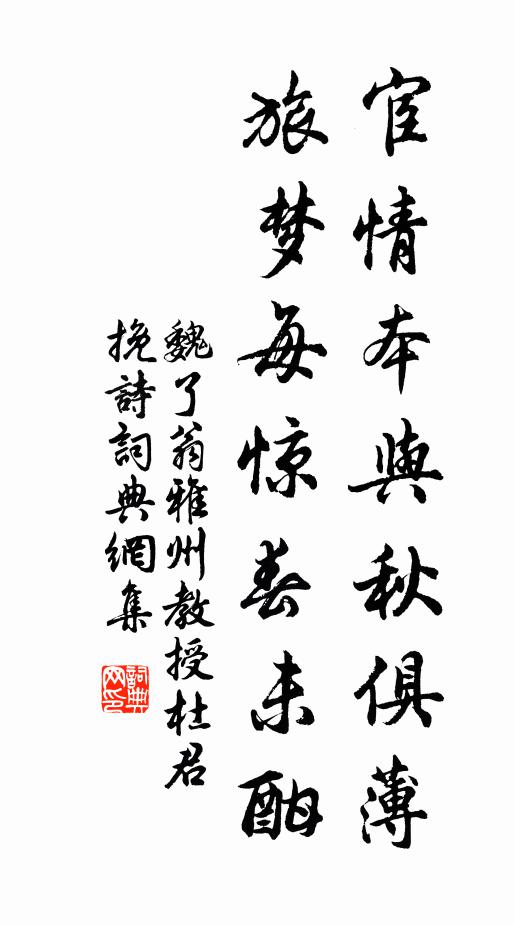 宦情本與秋俱薄
旅梦每惊春未酣
魏了翁雅州教授杜君
挽詩詞典網集
詞典
网印